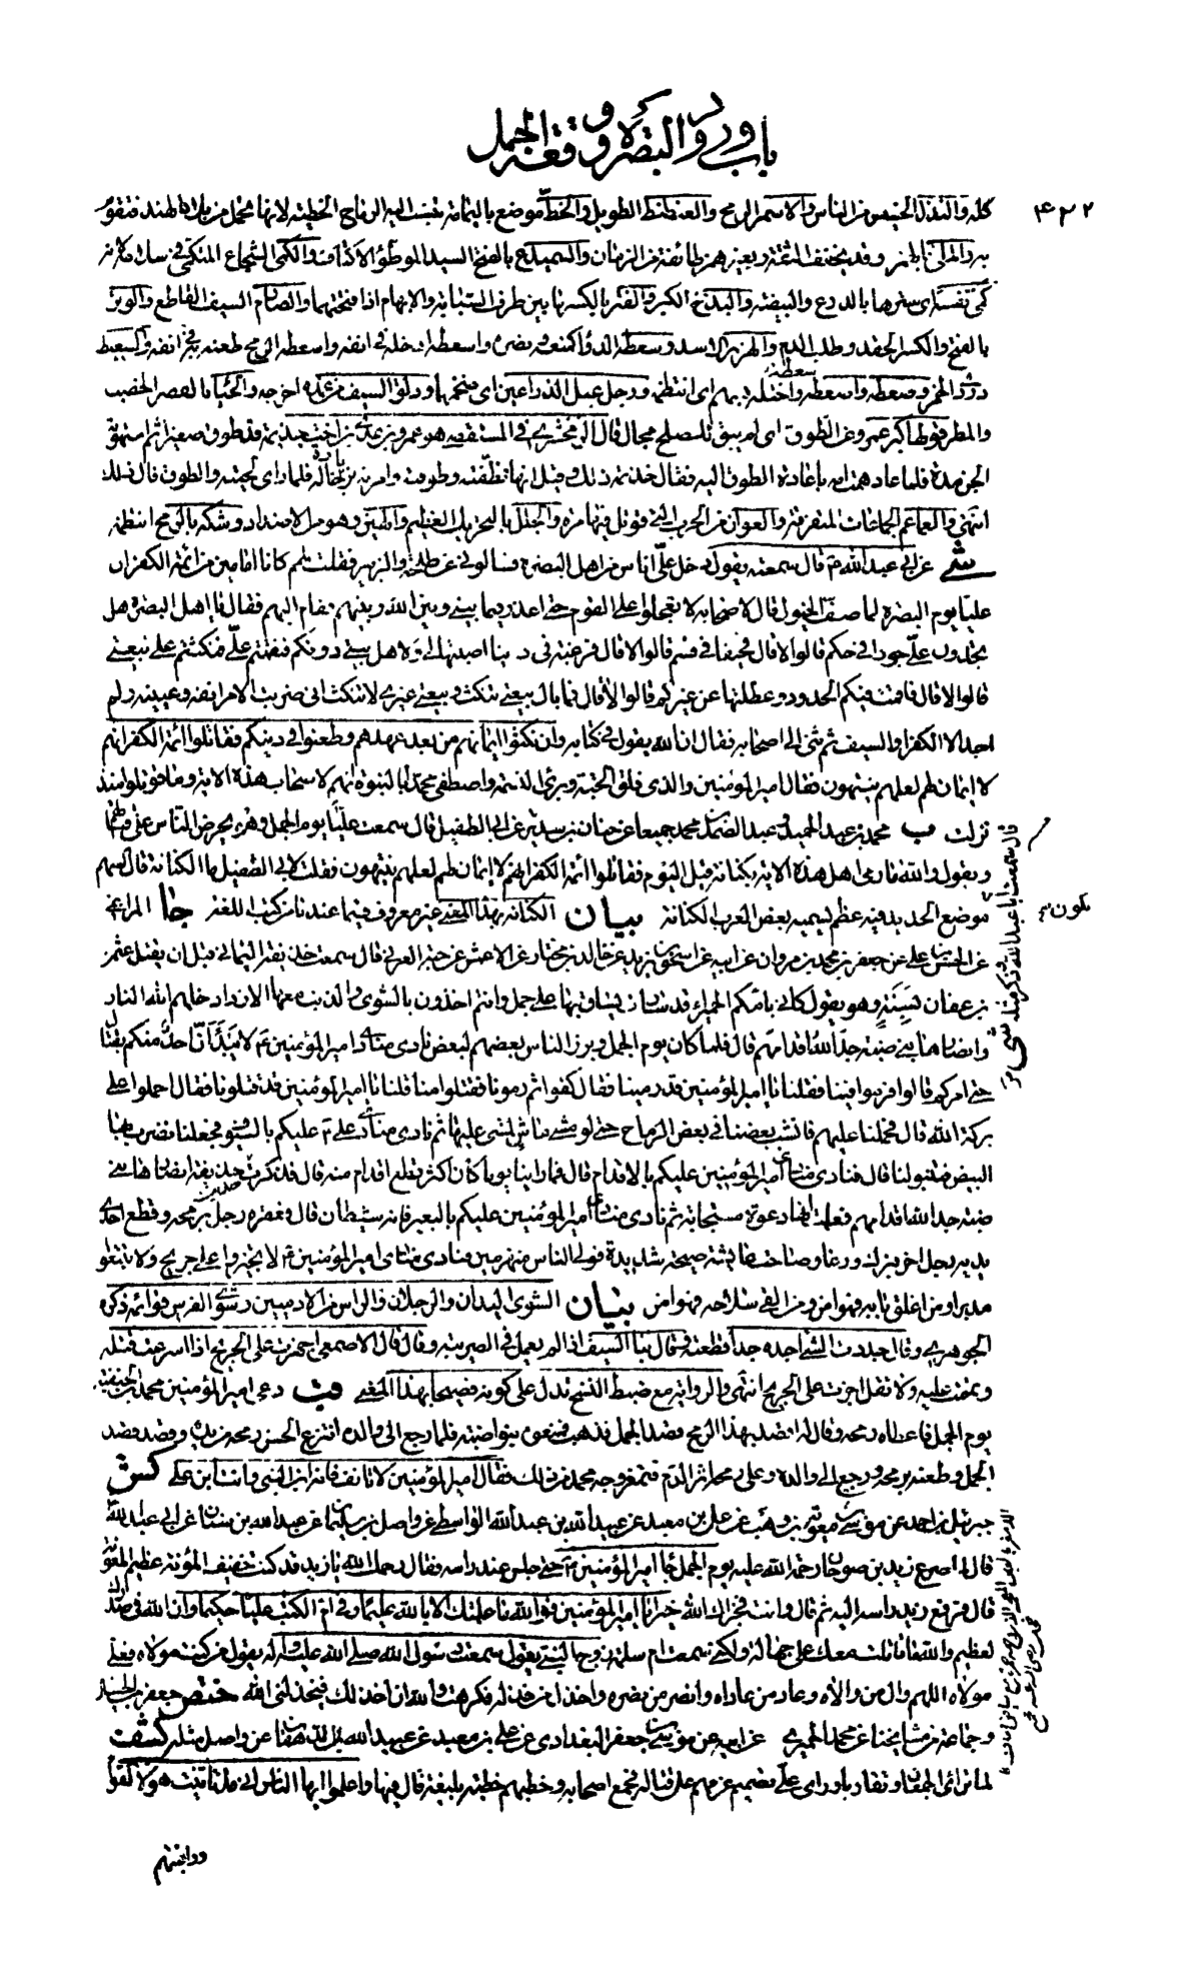 باب ورود البصرة ووقعة الجمل
٤٢٢
كله والنذل الخسيس من الناس والاسمر الرمح والعنطنط الطويل والخط موضع باليمامة تنسب اليه الرماح الخطية لانها تحمل من بلاد الهند فتقوم
به والمراد وقد يخفف الثمة ويعبر من الزمان والسميدع بالفتح السيد الموطؤ الاكناف والكمي الشجاع المتكمي في سلاحه لانه
كمى نفسه اى سترها بالدرع والبيضة والبذخ الكبر والفتر بالكسر ما بين طرف السبابة والابهام اذا فتحتهما والصمصام السيف القاطع والوتر
بالفتح والكسر الحقد وطلب الدم والهزبر الاسد وسعطه الدواء كمنعه ونصره واسعطه ادخله في انفه واسعطه الرمح طعنه به في انفه والسعيط
دردى الخمر وصعطه واصعطه سعطه واختله بسهم اى انتظمه ورجل عبل الذراعين اى ضخمهما ودلق السيف من غمده اخرجه والحيا بالقصر الخصب
والمطر قولها كبر عمرو عن الطوق اى لم يبق للصلح مجال قال الزمخشري في المستقصى هو عمرو بن عدى بن اخت جذيمة قد طوق صغيرا ثم استهوته
الجن مدة فلما عاد همت امه باعادة الطوق اليه فقال جذيمة ذلك وقيل انها نظفته وطوقته وامرته بزيارة خاله فلما راى لحيته والطوق قال ذلك
انتهى والعماعم الجماعات المتفرقة والعوان من الحرب التي قوتل فيها مرة والجلل بالتحريك العظيم والهين وهو من الاضداد وشكه بالرمح انتظمه
شى عن ابي عبد الله ع قال سمعته يقول دخل على اناس من اهل البصرة فسالوني عن طلحة والزبير فقلت لهم كانا امامين من ائمة الكفر ان
عليا يوم البصرة لما صف الخيول قال لاصحابه لا تعجلوا على القوم حتى اعذر فيما بيني وبين الله وبينهم فقام اليهم فقال يا اهل البصرة هل
تجدون على جورا في حكم قالوا لا قال فحيفا في قسم قالوا لا قال فرغبة في دنيا اصبتها لي ولاهل بيتي دونكم فنقمتم على فنكثتم على بيعتي
قالوا لا قال فاقمت فيكم الحدود وعطلتها عن غيركم قالوا لا قال فما بال بيعتي تنكث وبيعة غيري لا تنكث اني ضربت الامر انفه وعينه ولم
اجد الا الكفر او السيف ثم ثنى الى اصحابه فقال ان الله يقول في كتابه وان نكثوا ايمانهم من بعد عهدهم وطعنوا في دينكم فقاتلوا ائمة الكفر انهم
لا ايمان لهم لعلهم ينتهون فقال امير المؤمنين والذى فلق الحبة وبرئ النسمة واصطفى محمدا بالنبوة انهم لاصحاب هذه الاية وما قوتلوا منذ
نزلت ب محمد بن عبد الحميد وعبد الصمد بن محمد جميعا عن حنان بن سدير
قال سمعت ابا عبد الله ذكر مثله شى
عن ابي الطفيل قال سمعت عليا يوم الجمل وهو يحرض الناس على قتالهم
ويقول والله ما رمى اهل هذه الاية بكنانة قبل اليوم فقاتلوا ائمة الكفر انهم لا ايمان لهم لعلهم ينتهون فقلت لابي الطفيل ما الكنانة قال السهم
موضع الحديد فيه عظم تسميه بعض العرب الكنانة بيان الكنانة بهذا المعنى غير معروف فيما عندنا من كتب اللغة جا المراغي
تكون
عن الحسن بن علي عن جعفر بن محمد بن مروان عن ابيه عن اسحق بن يزيد عن خالد بن مختار عن الاعمش عن حبة العرني قال سمعت حذيفة اليماني قبل ان يقتل عثمن
بن عفان بسنة وهو يقول كاني بامكم الحميراء قد سارت يساق بها على جمل وانتم اخذون بالشوى والذنب معها الازد ادخلهم الله النار
وانصارها بني ضبة جد الله اقدامهم قال فلما كان يوم الجمل وبرز الناس بعضهم لبعض نادى منادى امير المؤمنين ع لا يبدأن احد منكم بقتال
حتى امركم قال فرموا فينا فقلنا يا امير المؤمنين قد رمينا فقال كفوا ثم رمونا فقتلوا منا قلنا يا امير المؤمنين قد قتلونا فقال احملوا على
بركة الله قال فحملنا عليهم فانشب بعضنا في بعض الرماح حتى لو مشى ماش لمشى عليها ثم نادى منادى علي ع عليكم بالسيوف فجعلنا نضرب بها
البيض فتنبو لنا قال فنادى منادى امير المؤمنين عليكم بالاقدام قال فما راينا يوما كان اكثر قطع اقدام منه قال فذكرت حديث حذيفة انصارها بني
ضبة جد الله اقدامهم فعلمت انها دعوة مستجابة ثم نادى منادى امير المؤمنين عليكم بالبعير فانه شيطان قال فعقره رجل برمحه وقطع احدى
يديه رجل اخر فبرك ورغا وصاحت عايشة صيحة شديدة فولى الناس منهزمين فنادى منادى امير المؤمنين ع لا تجيزوا على جريح ولا تتبعوا
مدبرا ومن اغلق بابه فهو امن ومن القى سلاحه فهو امن بيان الشوى اليدان والرجلان والراس من الادميين وشوى الفرس قوائمه ذكره
الجوهري وقال جددت الشيء اجده جدا قطعته وقال نبا السيف اذا لم يعمل في الضريبة وقال قال الاصمعي اجهزت على الجريح اذا اسرعت قتله
وتممت عليه ولا تقل اجزت على الجريح انتهى والرواية مع ضبط النسخ تدل على كونه فصيحا بهذا المعنى قب دعى امير المؤمنين محمد بن الحنفية
يوم الجمل فاعطاه رمحه وقال له اقصد بهذا الرمح قصد الجمل فذهب فمنعوه بنو ضبة فلما رجع الى والده انتزع الحسن رمحه من يده وقصد قصد
الجمل وطعنه برمحه ورجع الى والده وعلى رمحه اثر الدم فتمغر وجه محمد من ذلك فقال امير المؤمنين لا تانف فانه ابن النبي وانت ابن علي كش
جبرئيل بن احمد عن موسى بن معوية بن وهب عن علي بن معبد عن عبيد الله بن عبد الله الواسطي عن واصل بن سليمان عن عبد الله بن سنان عن ابي عبد الله
قال لما صرع زيد بن صوحان رحمة الله عليه يوم الجمل جاء امير المؤمنين ع حتى جلس عند راسه فقال رحمك الله يا زيد قد كنت خفيف المؤنة عظيم المعونة
قال فرفع زيد راسه اليه ثم قال وانت فجزاك الله خيرا يا امير المؤمنين فوالله ما علمتك الا بالله عليما وفي ام الكتب عليا حكيما وان الله في صدرك
لعظيم والله ما قاتلت معك على جهالة ولكني سمعت ام سلمة زوج النبي يقول سمعت رسول الله صلى الله عليه واله يقول من كنت مولاه فعلي
مولاه اللهم وال من والاه وعاد من عاداه وانصر من نصره واخذل من خذله فكرهت والله ان اخذلك فيخذلني الله ختص جعفر بن الحسين
وجماعة من مشايخنا عن محمد الحميري عن ابيه عن موسى بن جعفر البغدادي عن علي بن معبد عن عبيد الله بن الدهقان عن واصل مثله كشف
لما تراءى الجمعان وتقاربا وراى علي تصميم عزمهم على قتاله فجمع اصحابه وخطبهم خطبة بليغة قال فيها واعلموا ايها الناس اني قد تانيت هؤلاء القوم
وراقبتهم